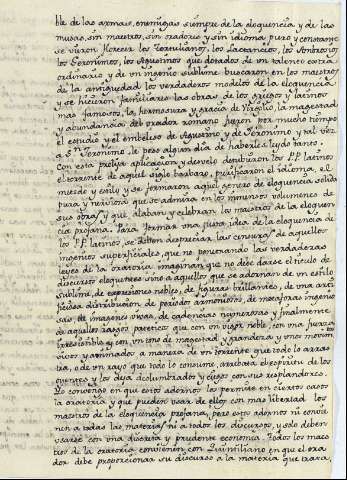 ble de las armas, enemigas siempre de la eloquencia y de las
musas, sin maestros, sin oradores y sin idioma puro y constante
se vieron florecer los Tertulianos, los Lactancios, los Ambrosios,
los Geronimos, los Agustinos que dotados de un talento extra
ordinario y de un ingenio sublime buscaron en los maestros
de la antiguedad los verdaderos modelos de la eloquencia
y se hicieron familiares las obras de los griegos y latinos
mas famosos, la hermosura y gracia de Virgilio, la magestad
y abundancia del orador romano fueron por mucho tiempo
el estudio y el embeleso de Agustino y de Geronimo, y tal vez
a Sn. Geronimo le peso algun dia de haberlas leydo tanto.
Con esta prolija aplicacion y desvelo los PP. latinos
el torrente de aquel siglo barbaro, purificaron el idioma, el
metodo y estilo y se formaron aquel genero de eloquencia solida
pura y virtuosa que se admira en los inmensos volumenes de
sus obras y que alaban y celebran los maestros de la eloquen
cia profana. Para formar una justa idea de la eloquencia de
los PP. latinos, se deben despreciar las censuras de aquellos
ingenios superficiales, que no penetrando las verdaderas
leyes de la oratoria imaginan que no debe darse el titulo de
discursos eloquentes sino a aquellos que se adornan de un estilo
sublime, de expresiones nobles, de figuras brillantes, de una arti
ficiosa distribucion de periodos armoniosos, de metaforas ingenio
sas, de imagenes vivas, de cadencias numerosas y finalmente
de aquellos rasgos pateticos que con un vigor noble, con una fuerza
irresistible y con un tono de magestad y grandeza y unos movim
vivos y animados a manera de un torrente que todo lo arras
tra, o de un rayo que todo lo consume, arrebata el espiritu de los
oyentes y los deja deslumbrados y ciegos con sus resplandores.
Yo convengo en que estos adornos los permite en ciertos casos
la oratoria y que pueden usar de ellos con mas libertad los
maestros de la eloquencia profana, pero estos adornos ni convie
nen a todas las materias ni a todos los discursos, y solo deben
usarse con una discreta y prudente economia. Todos los maes
tros de la oratoria convienen con Quintiliano en que el ora
dor debe proporcionar su discurso a la materia que trata,